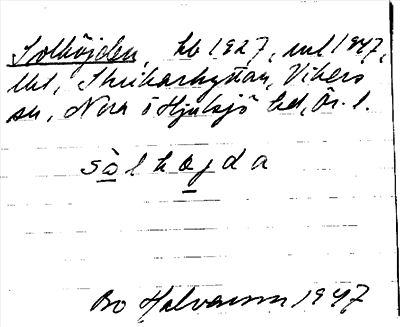 Solhöjden, hb 1927, uul 1947,
lht, Skrikarhyttan, Vikers
sn, Nora o Hjulsjö bd, Ör. l.
sòlhæjda
Bo Halvarson 1947